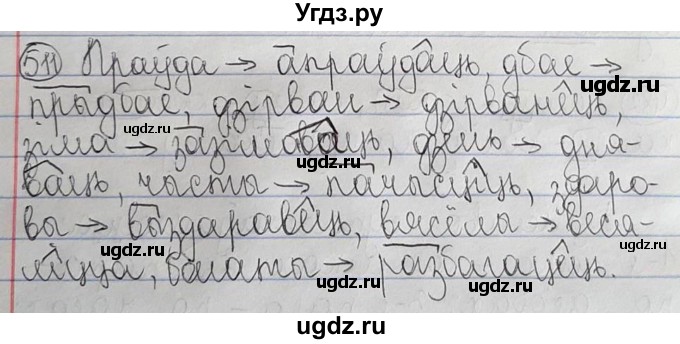 Угдз.ру
511 Праўда → апраўдаць, дбае →
прыдбае, дзірван → дзірванець,
зіма → зазімаваць, дзень → дня-
ваць, чысты → пачысціць, здаро-
вы → выздаравець, вясёлы → веся-
ліцца, багаты → разбагацець.
ugdz.ru
ugdz.ru
ugdz.ru
ugdz.ru
ugdz.ru
ugdz.ru
ugdz.ru
ugdz.ru
ugdz.ru
ugdz.ru